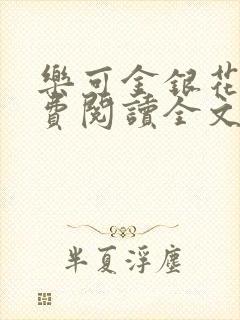 樂可金銀花
費閱讀全文
半夏浮塵